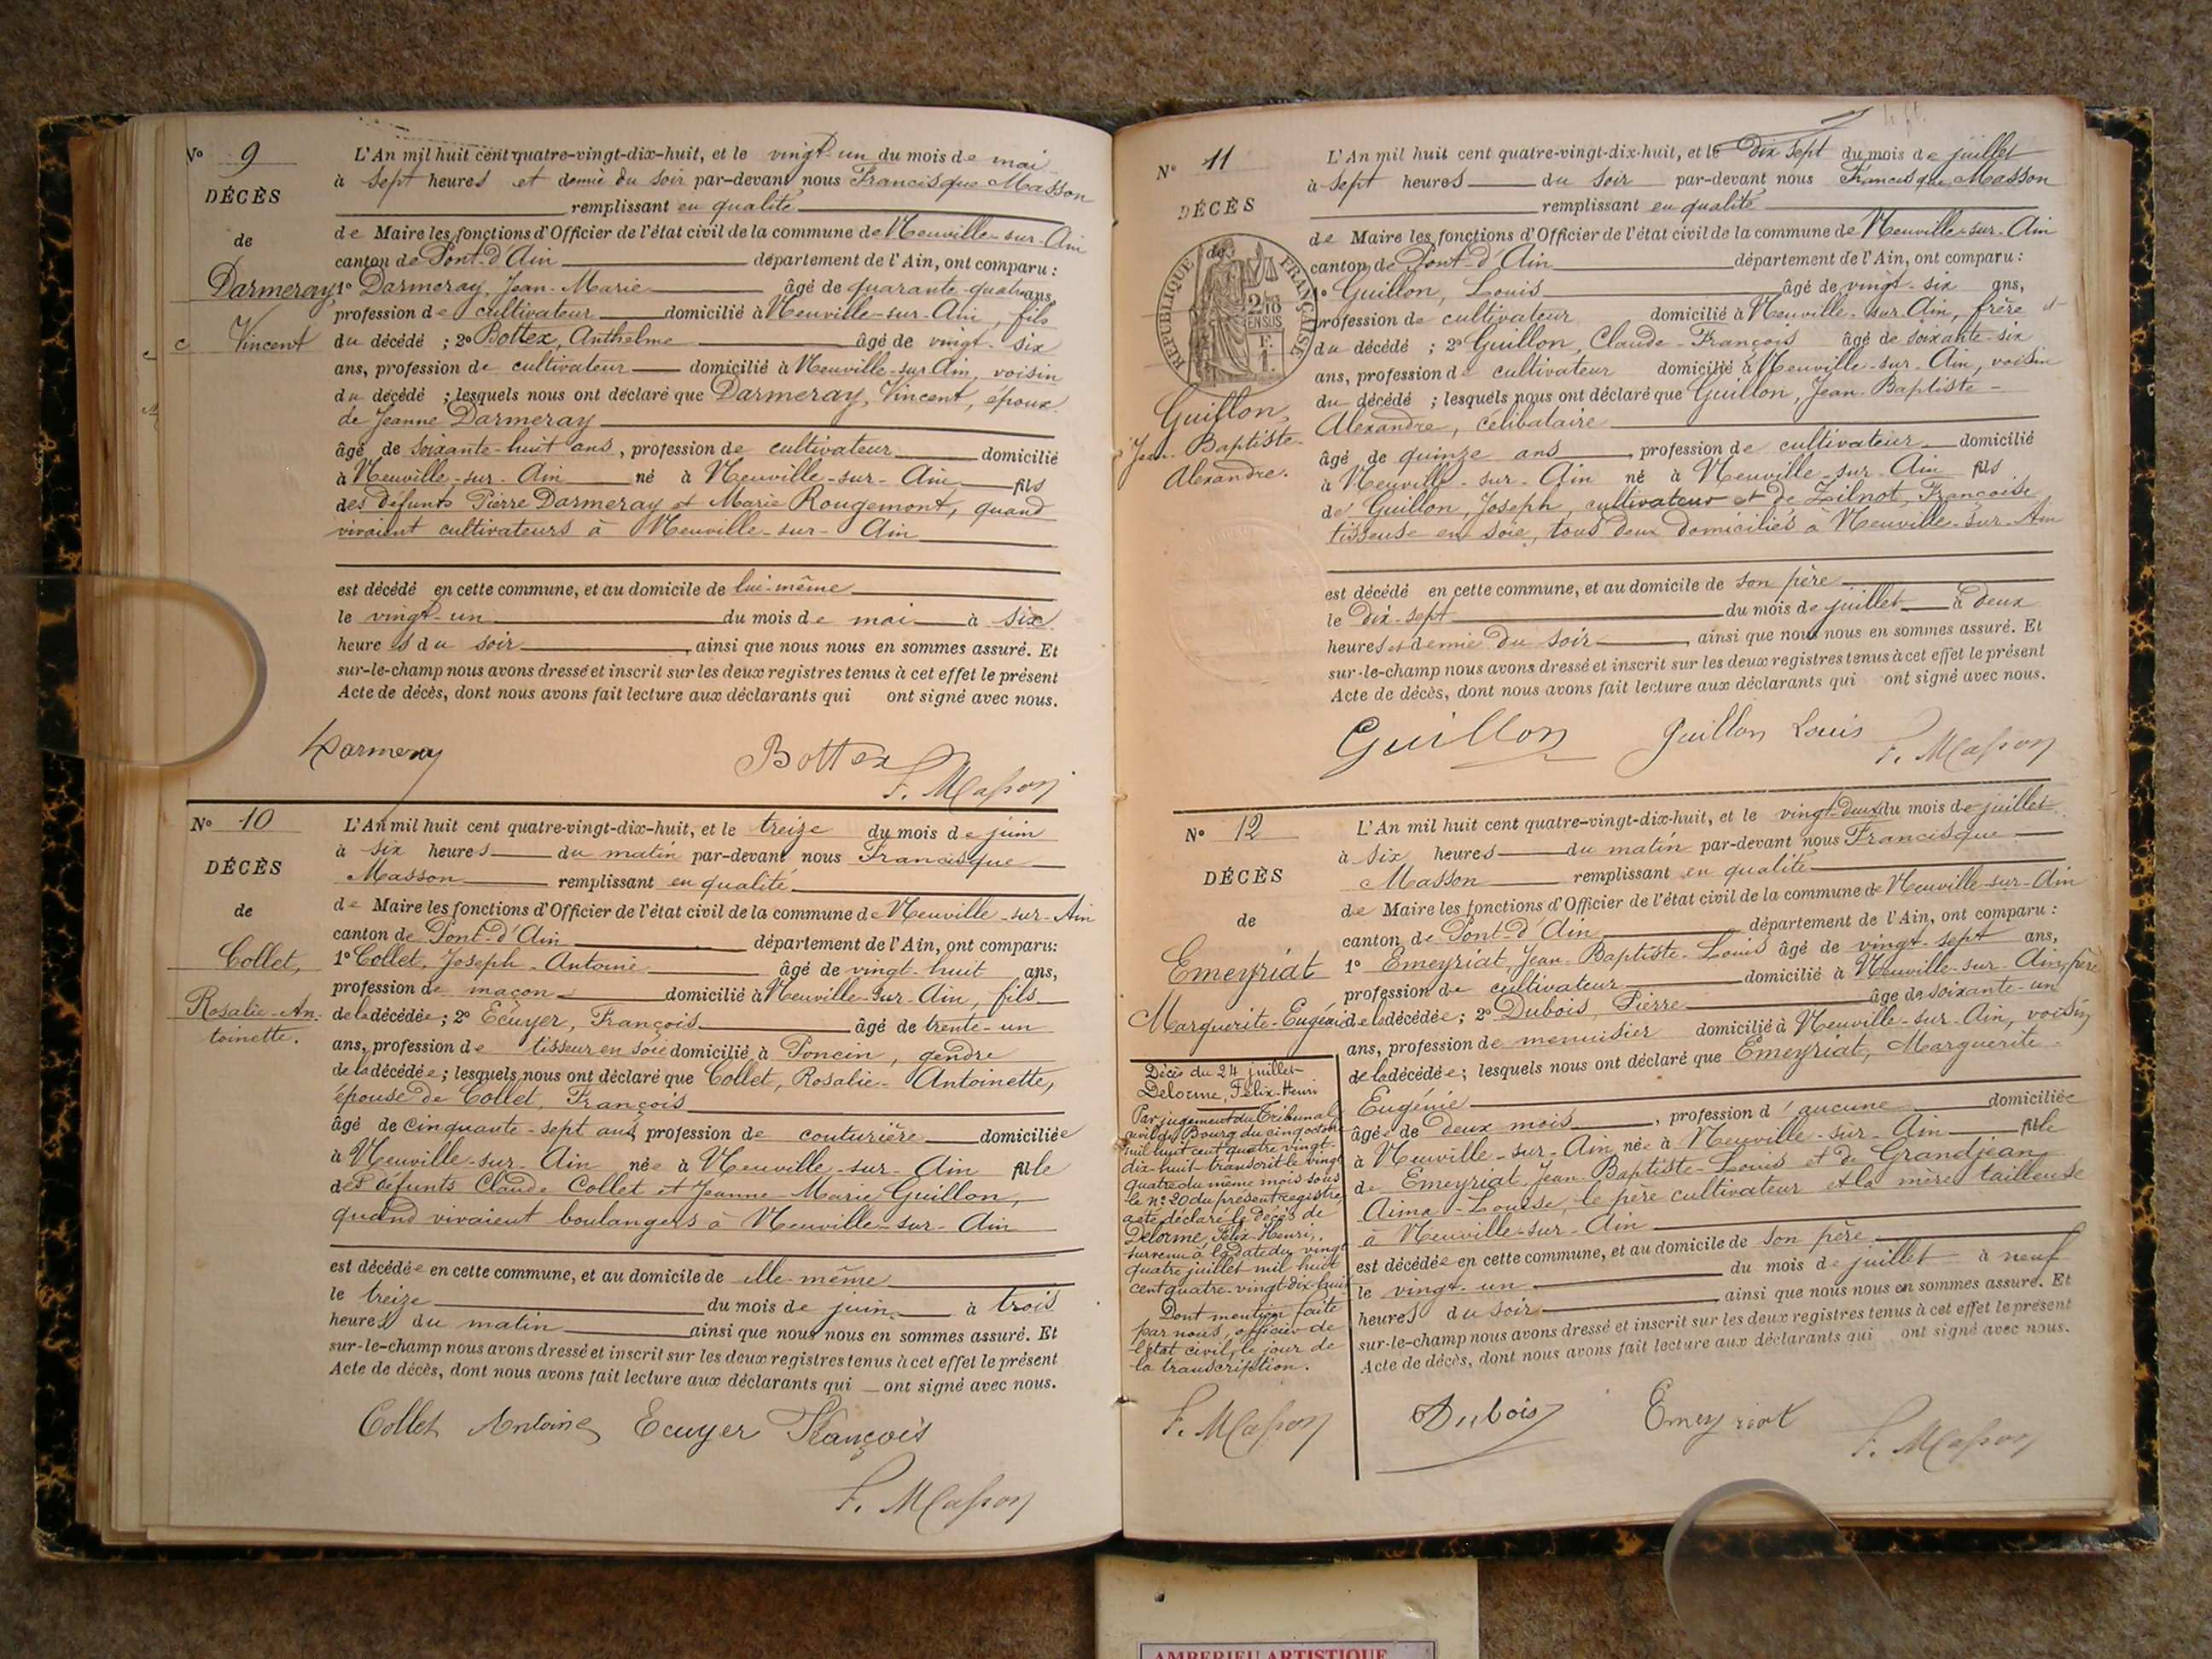 N° 9
DÉCÈS
de
Darmeray
Vincent
L'An mil huit cent quatre-vingt-dix-huit, et le vingt-un du mois de mai
à sept heures et demie du soir par-devant nous Francisque Masson
remplissant en qualité
de Maire les fonctions d'Officier de l'état civil de la commune de Neuville-sur-Ain
canton de Pont-d'Ain département de l'Ain, ont comparu :
1° Darmeray, Jean-Marie âgé de quarante-quatre ans,
profession de cultivateur domicilié à Neuville-sur-Ain, fils
du décédé ; 2° Bottex, Anthelme âgé de vingt-six
ans, profession de cultivateur domicilié à Neuville-sur-Ain, voisin
du décédé ; lesquels nous ont déclaré que Darmeray, Vincent, époux
de Jeanne Darmeray
âgé de soixante-huit ans, profession de cultivateur domicilié
à Neuville-sur-Ain né à Neuville-sur-Ain fils
des défunts Pierre Darmeray et Marie Rougemont, quand
vivaient cultivateurs à Neuville-sur-Ain
est décédé en cette commune, et au domicile de lui-même
le vingt-un du mois de mai à six
heures du soir ainsi que nous nous en sommes assuré. Et
sur-le-champ nous avons dressé et inscrit sur les deux registres tenus à cet effet le présent
Acte de décès, dont nous avons fait lecture aux déclarants qui ont signé avec nous.
Darmeray Bottex
F. Masson
N° 10
DÉCÈS
de
Collet,
Rosalie-An-
toinette.
L'An mil huit cent quatre-vingt-dix-huit, et le treize du mois de juin
à six heures du matin par-devant nous Francisque
Masson remplissant en qualité
de Maire les fonctions d'Officier de l'état civil de la commune de Neuville-sur-Ain
canton de Pont-d'Ain département de l'Ain, ont comparu:
1° Collet, Joseph-Antoine âgé de vingt-huit ans,
profession de maçon domicilié à Neuville-sur-Ain, fils
de la décédée; 2° Ecuyer, François âgé de trente-un
ans, profession de tisseur en soie domicilié à Poncin, gendre
de la décédée; lesquels nous ont déclaré que Collet, Rosalie-Antoinette,
épouse de Collet, François
âgé de cinquante-sept ans, profession de couturière domiciliée
à Neuville-sur-Ain née à Neuville-sur-Ain fille
des défunts Claude Collet et Jeanne-Marie Guillon,
quand vivaient boulangers à Neuville-sur-Ain
est décédée en cette commune, et au domicile de elle-même
le treize du mois de juin à trois
heures du matin ainsi que nous nous en sommes assuré. Et
sur-le-champ nous avons dressé et inscrit sur les deux registres tenus à cet effet le présent
Acte de décès, dont nous avons fait lecture aux déclarants qui ont signé avec nous.
Collet Antoine Ecuyer François
F. Masson
N° 11
DÉCÈS
de
RÉPUBLIQUE FRANÇAISE
Guillon,
Jean-Baptiste-
Alexandre.
L'An mil huit cent quatre-vingt-dix-huit, et le dix sept du mois de juillet
à sept heures du soir par-devant nous Francisque Masson
remplissant en qualité
de Maire les fonctions d'Officier de l'état civil de la commune de Neuville-sur-Ain
canton de Pont-d'Ain département de l'Ain, ont comparu :
1° Guillon, Louis âgé de vingt-six ans,
profession de cultivateur domicilié à Neuville-sur-Ain, frère
du décédé ; 2° Guillon, Claude-François âgé de soixante-six
ans, profession de cultivateur domicilié à Neuville-sur-Ain, voisin
du décédé ; lesquels nous ont déclaré que Guillon, Jean-Baptiste-
Alexandre, célibataire
âgé de quinze ans, profession de cultivateur domicilié
à Neuville-sur-Ain né à Neuville-sur-Ain fils
de Guillon, Joseph, cultivateur et de Zilnot, Françoise
tisseuse en soie, tous deux domiciliés à Neuville-sur-Ain
est décédé en cette commune, et au domicile de son père
le dix-sept du mois de juillet à deux
heures et demie du soir, ainsi que nous nous en sommes assuré. Et
sur-le-champ nous avons dressé et inscrit sur les deux registres tenus à cet effet le présent
Acte de décès, dont nous avons fait lecture aux déclarants qui ont signé avec nous.
Guillon Guillon Louis F. Masson
N° 12
DÉCÈS
de
Emeyriat
Marguerite-Eugénie
L'An mil huit cent quatre-vingt-dix-huit, et le vingt-deux du mois de juillet
à six heures du matin par-devant nous Francisque
Masson remplissant en qualité
de Maire les fonctions d'Officier de l'état civil de la commune de Neuville-sur-Ain
canton de Pont-d'Ain département de l'Ain, ont comparu :
1° Emeyriat, Jean-Baptiste-Louis âgé de vingt-sept ans,
profession de cultivateur domicilié à Neuville-sur-Ain, père
de la décédée; 2° Dubois, Pierre âgé de soixante-un
ans, profession de menuisier domicilié à Neuville-sur-Ain, voisin
de la décédée; lesquels nous ont déclaré que Emeyriat, Marguerite-
Eugénie
âgée de deux mois, profession d'aucune domiciliée
à Neuville-sur-Ain née à Neuville-sur-Ain fille
de Emeyriat Jean-Baptiste-Louis et de Grandjean
Aima-Louise, le père cultivateur et la mère tailleuse
à Neuville-sur-Ain
est décédée en cette commune, et au domicile de son père
le vingt-un du mois de juillet à neuf
heures du soir ainsi que nous nous en sommes assuré. Et
sur-le-champ nous avons dressé et inscrit sur les deux registres tenus à cet effet le présent
Acte de décès, dont nous avons fait lecture aux déclarants qui ont signé avec nous.
Dubois Emeyriat F. Masson
Décès du 24 juillet
Delorme, Félix-Henri
Par jugement du Tribunal
civil de Bourg du cinq octobre
mil huit cent quatre vingt-
dix-huit transcrit le vingt
quatre du même mois sous
le n° 20 du présent registre,
a été déclaré le décès de
Delorme, Félix-Henri,
survenu à la date du vingt
quatre juillet mil huit
cent quatre-vingt-dix-huit
Dont mention faite
par nous, officier de
l'état civil, le jour de
la transcription.
F. Masson
AMBERIEU ARTISTIQUE